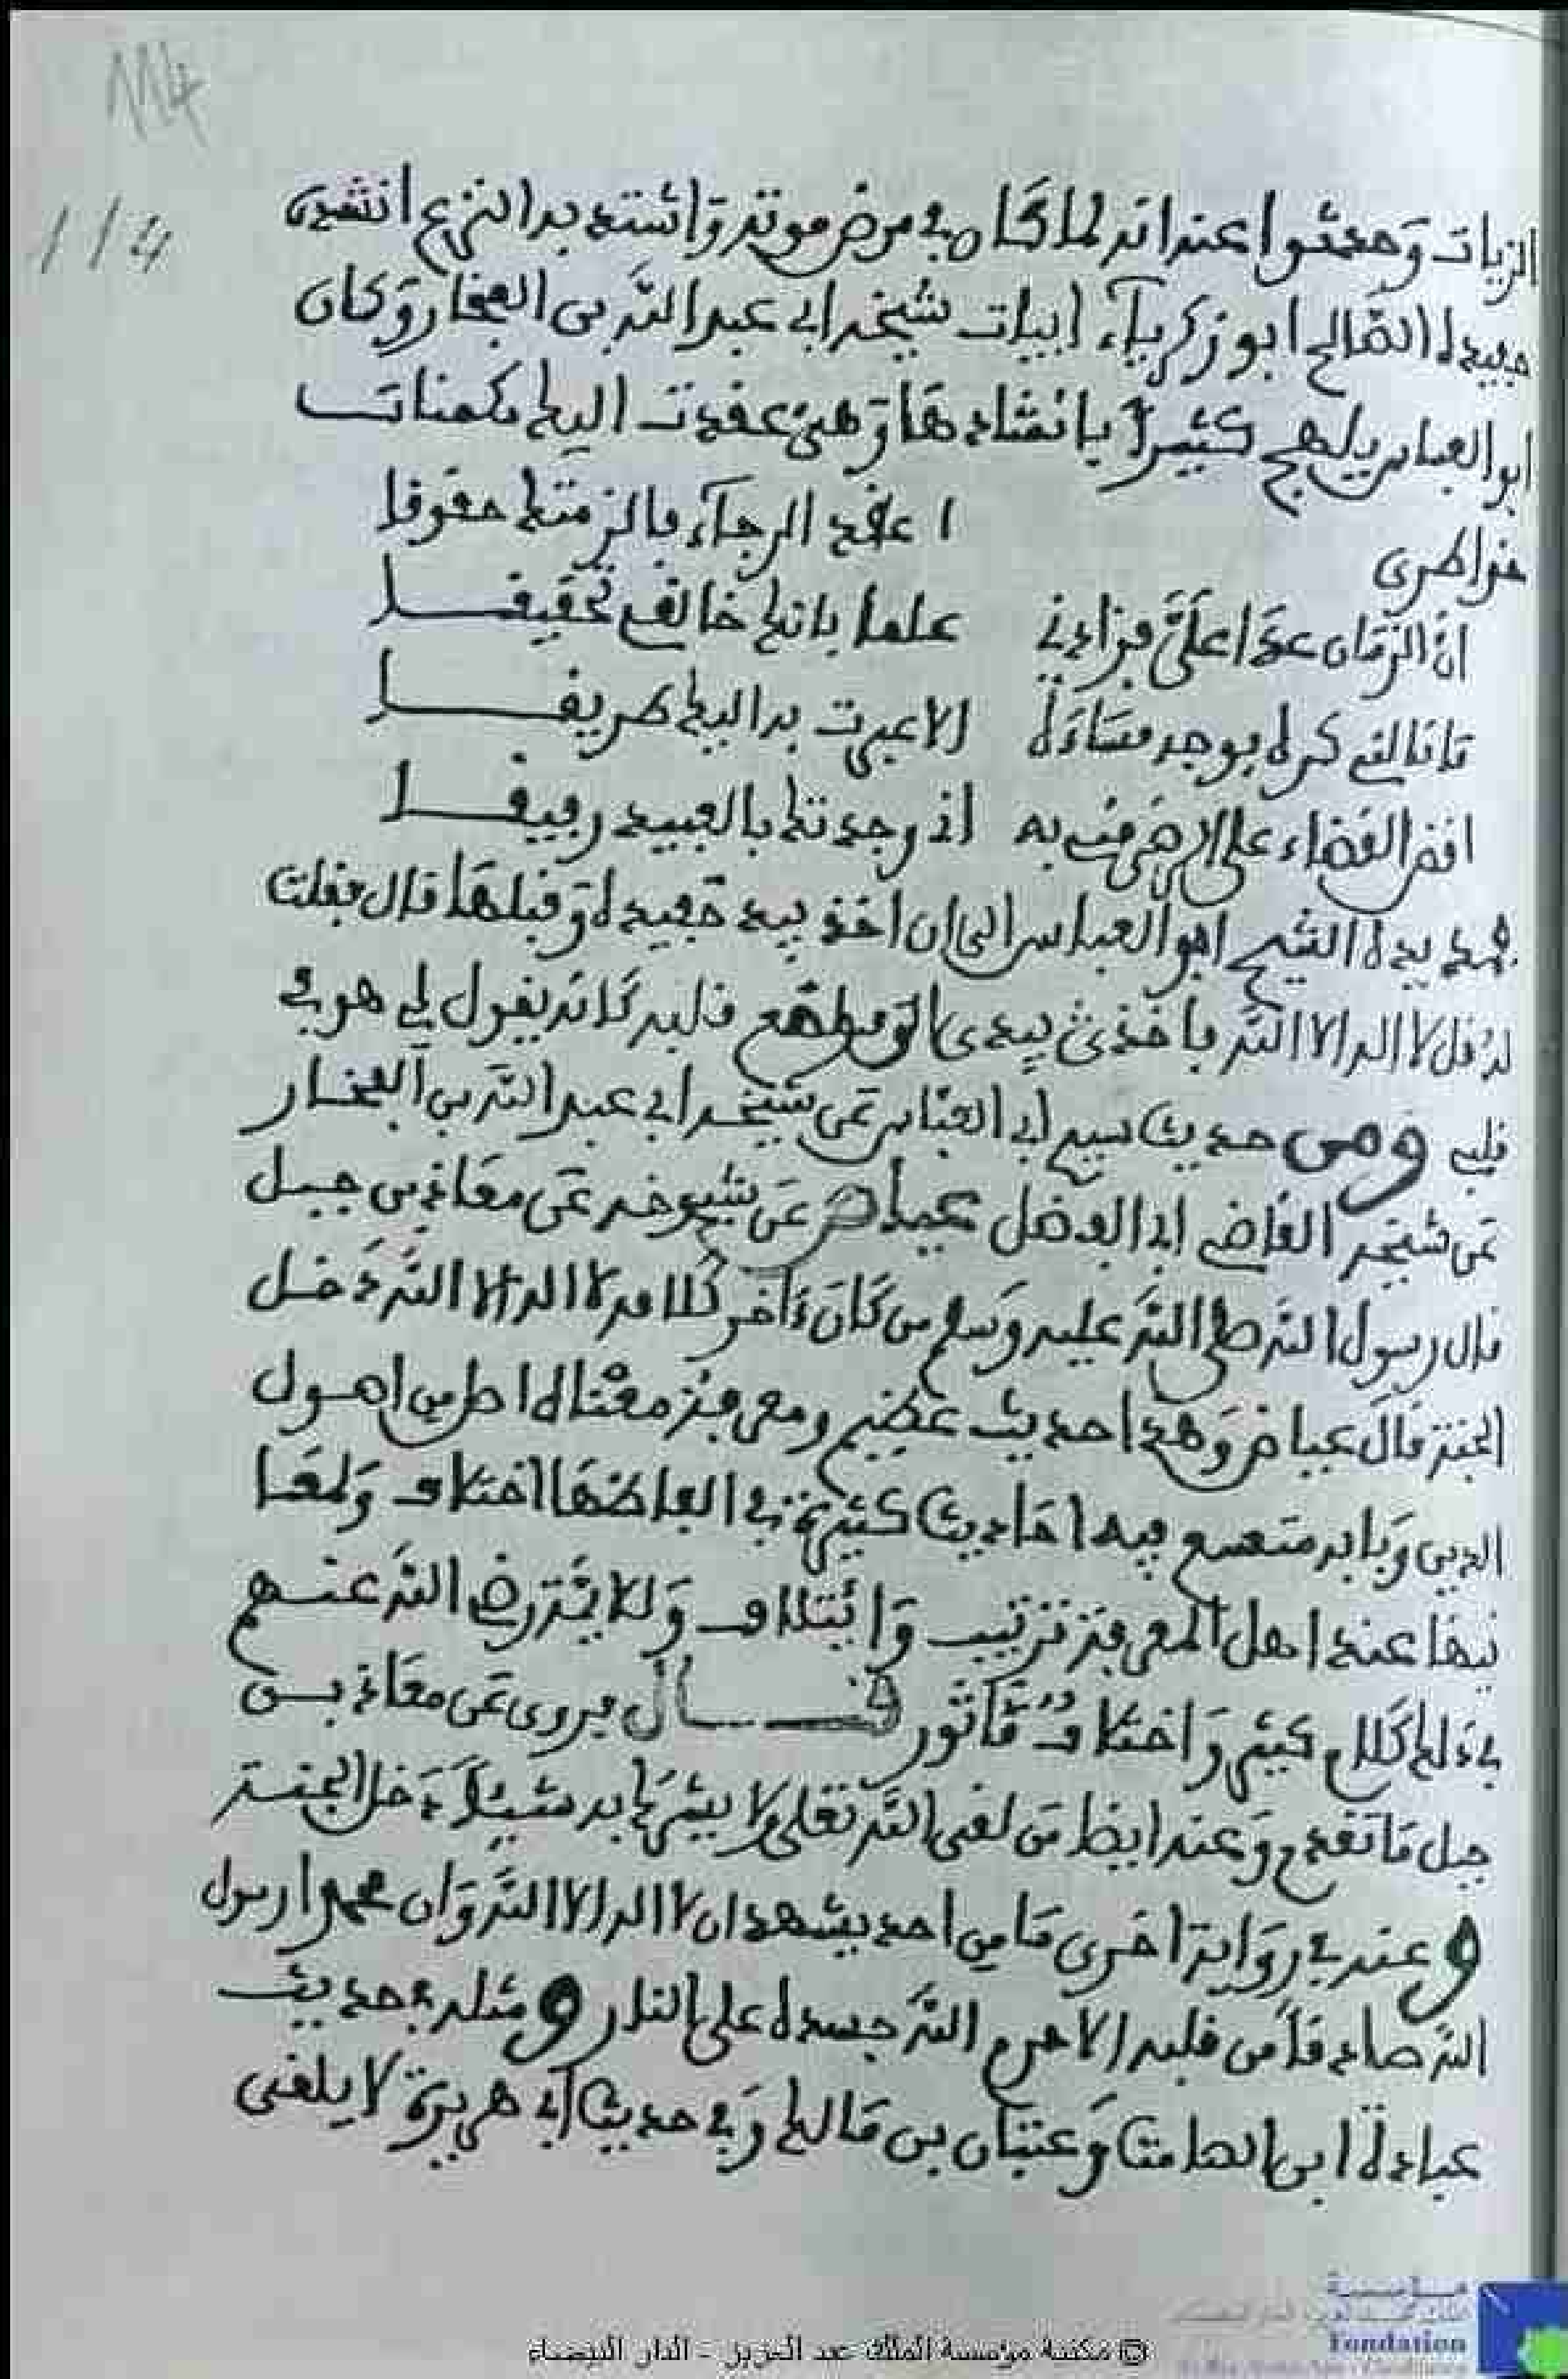 114
114
الزيات وحدثوا عنه انه لما كان في مرض موته واشتد به النزع انشده
حفيده الصالح ابو زكرياء ابيات شيخه ابي عبد الله بن الفخار وكان
ابو العباس يلهج كثيرا بانشادها وهي عقدت اليك مكمنات
خواطري
ا عقد الرجاء فالزمتك حقوقا
ان الزمان عدا علي فزادني علما بانك خالقي تحقيقا
ما نالني كرب بوجه مساءة الا عبرت به اليك طريقا
اقض القضاء على الرضى مني به اني وجدتك بالعبيد رفيقا
فمد يده الشيخ ابو العباس الى ان اخذ بيد حفيده وقبلها قال فقلت
له قل لا اله الا الله فاخذني بيدي الى موضع قلبه كانه يقول لي هو في
قلبي ومن حديث سيدي ابي العباس عن شيخه ابي عبد الله بن الفخار
عن شيخه القاضي ابي الفضل عياض عن شيوخه عن معاذ بن جبل
قال رسول الله صلى الله عليه وسلم من كان ءاخر كلامه لا اله الا الله دخل
الجنة قال عياض وهذا حديث عضيم ومعرفة معناه اصل من اصول
الدين وبابه متسع فيه احاديث كثيرة في الفاضها اختلاف ولمعا
نيها عند اهل المعرفة ترتيب وائتلاف وللايمة رضي الله عنهم
في ذلك كلام كثير واختلاف ماثور قال فروى عن معاذ بن
جبل ما تقدم وعنه ايظا من لقى الله تعلى لا يشرك به شيئا دخل الجنة
وعنه في رواية اخرى ما من احد يشهد ان لا اله الا الله وان محمدا رسول
الله صادقا من قلبه الا حرم الله جسده على النار ومثله في حديث
عبادة ابن الصامت وعتبان بن مالك وفي حديث ابي هريرة لا يلقى
مؤسسة
Fondation
© مكتبة مؤسسة الملك عبد العزيز - الدار البيضاء